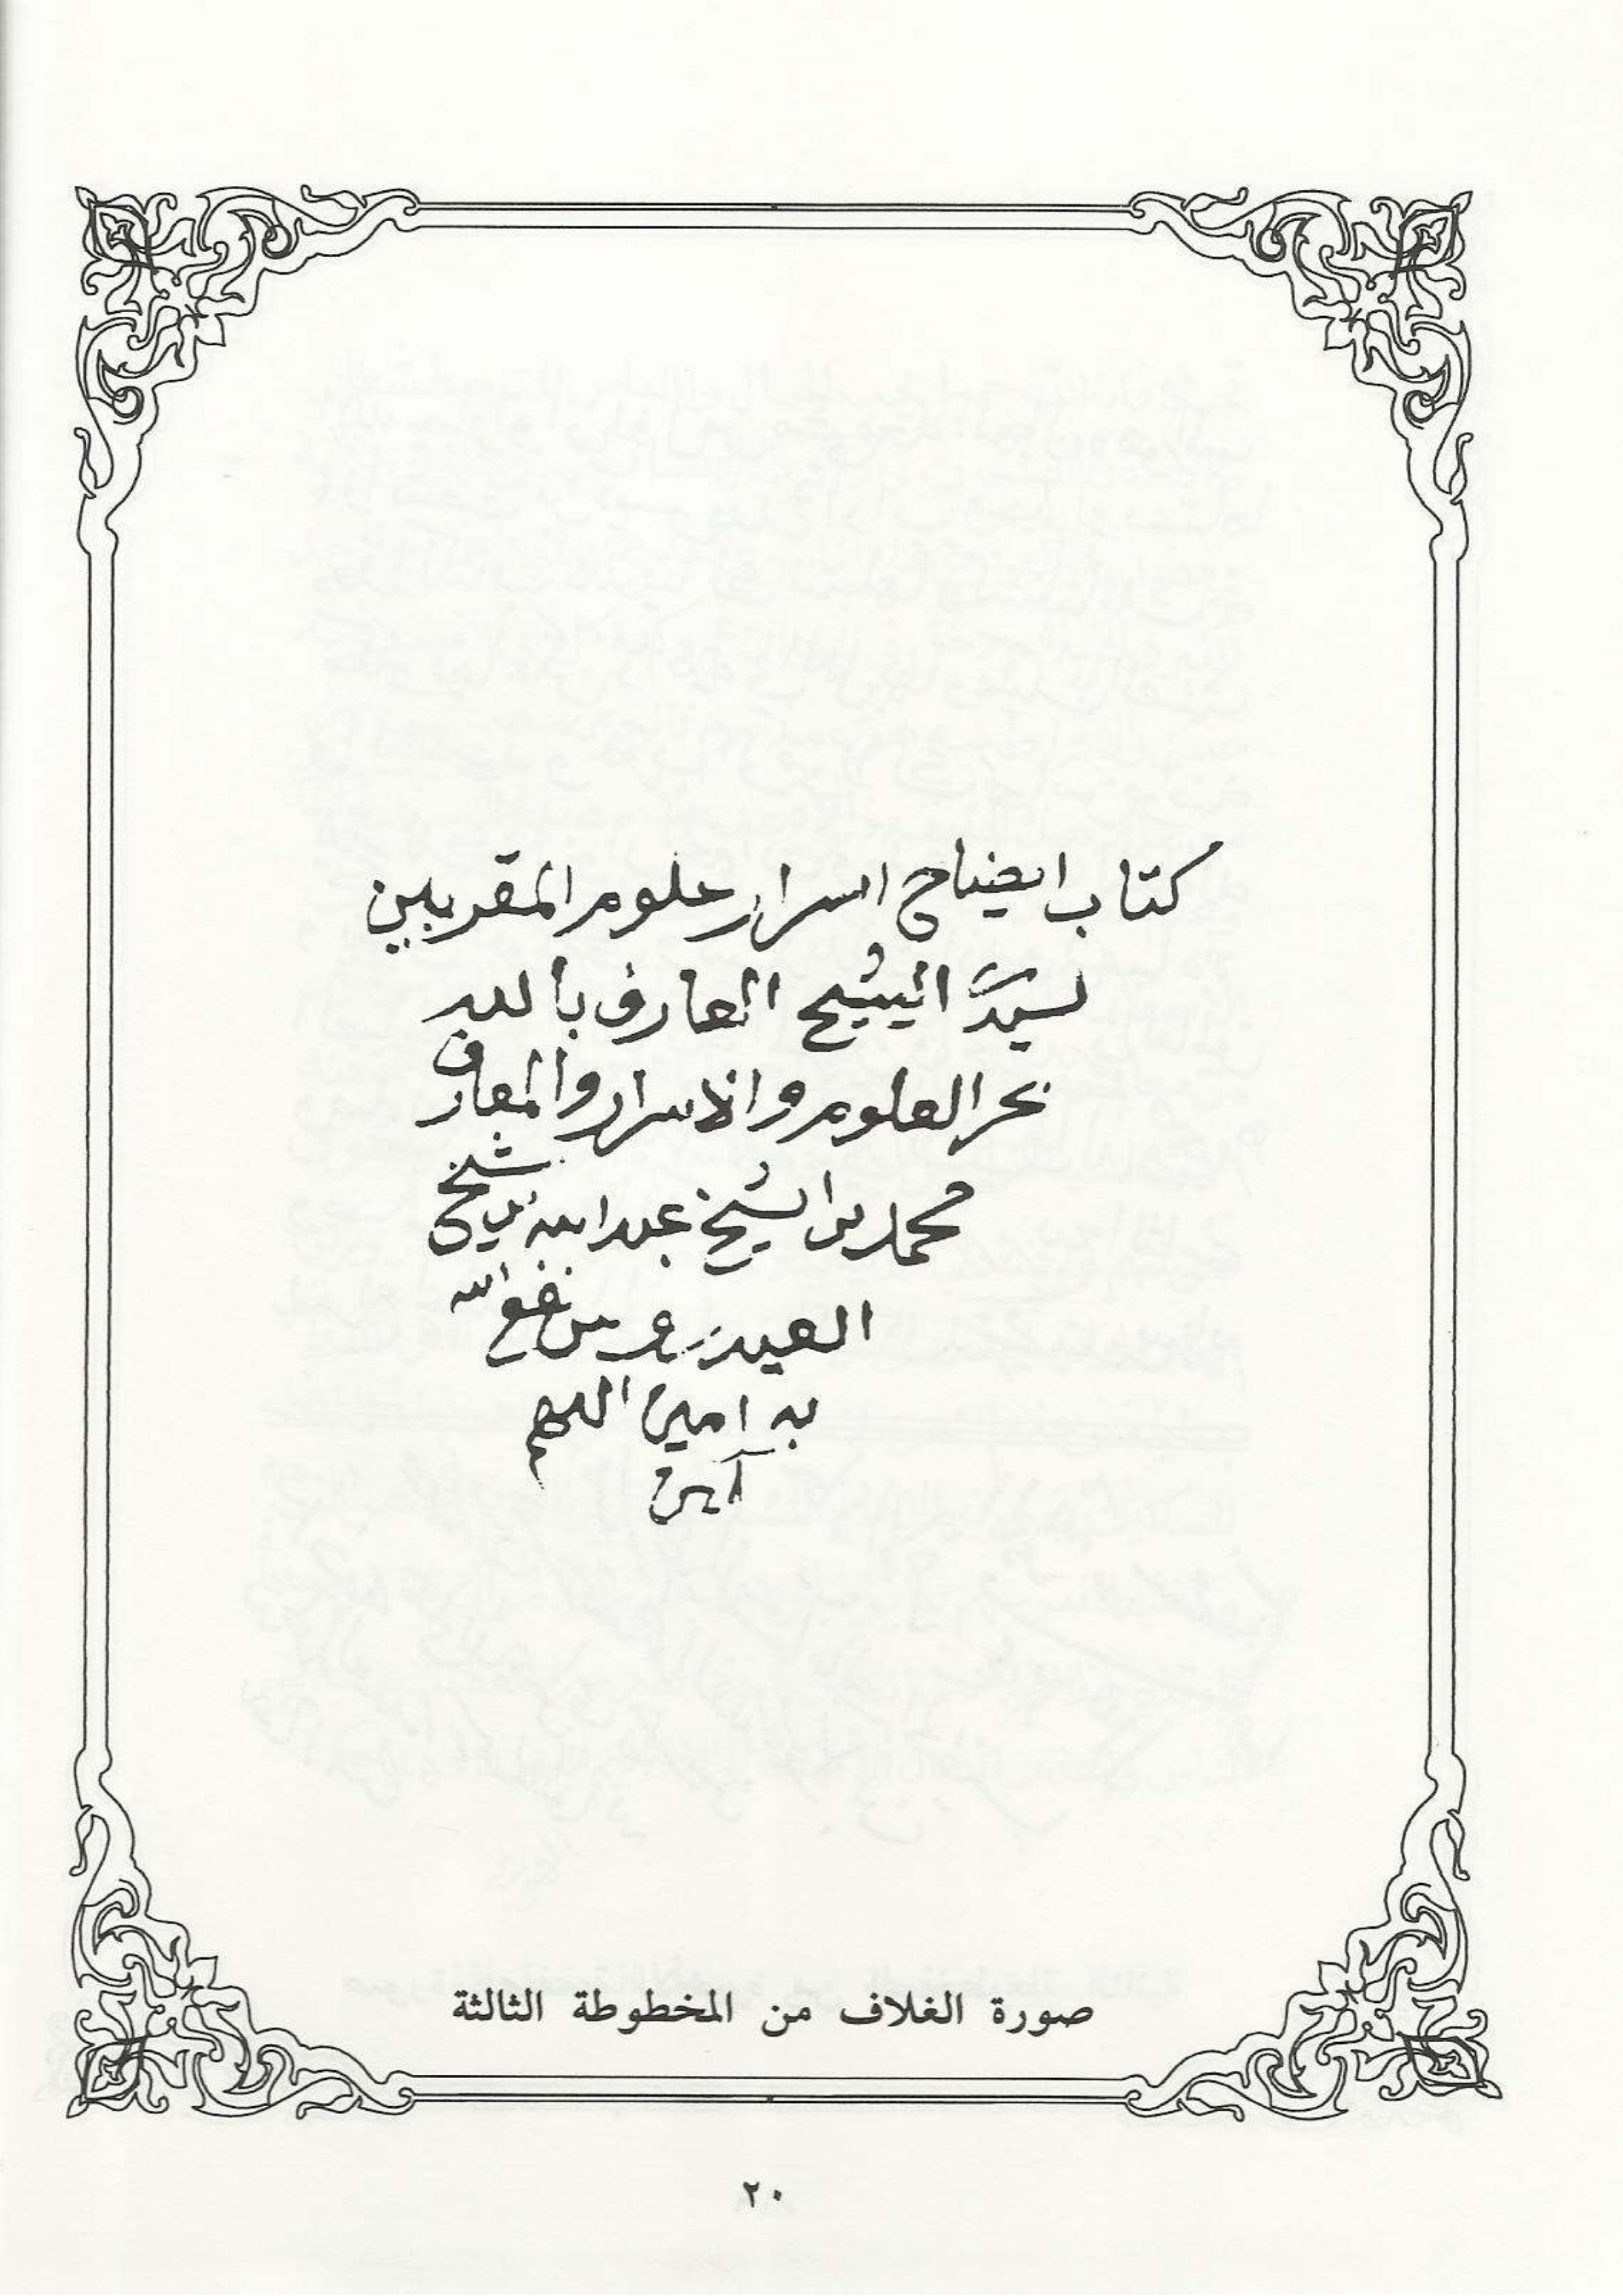 كتاب ايضاح اسرار علوم المقربين
لسيدنا الشيخ العارف بالله
بحر العلوم والاسرار والمعارف
محمد بن الشيخ عبد الله بن شيخ
العيدروس نفع الله
به امين اللهم
آمين
صورة الغلاف من المخطوطة الثالثة
٢٠